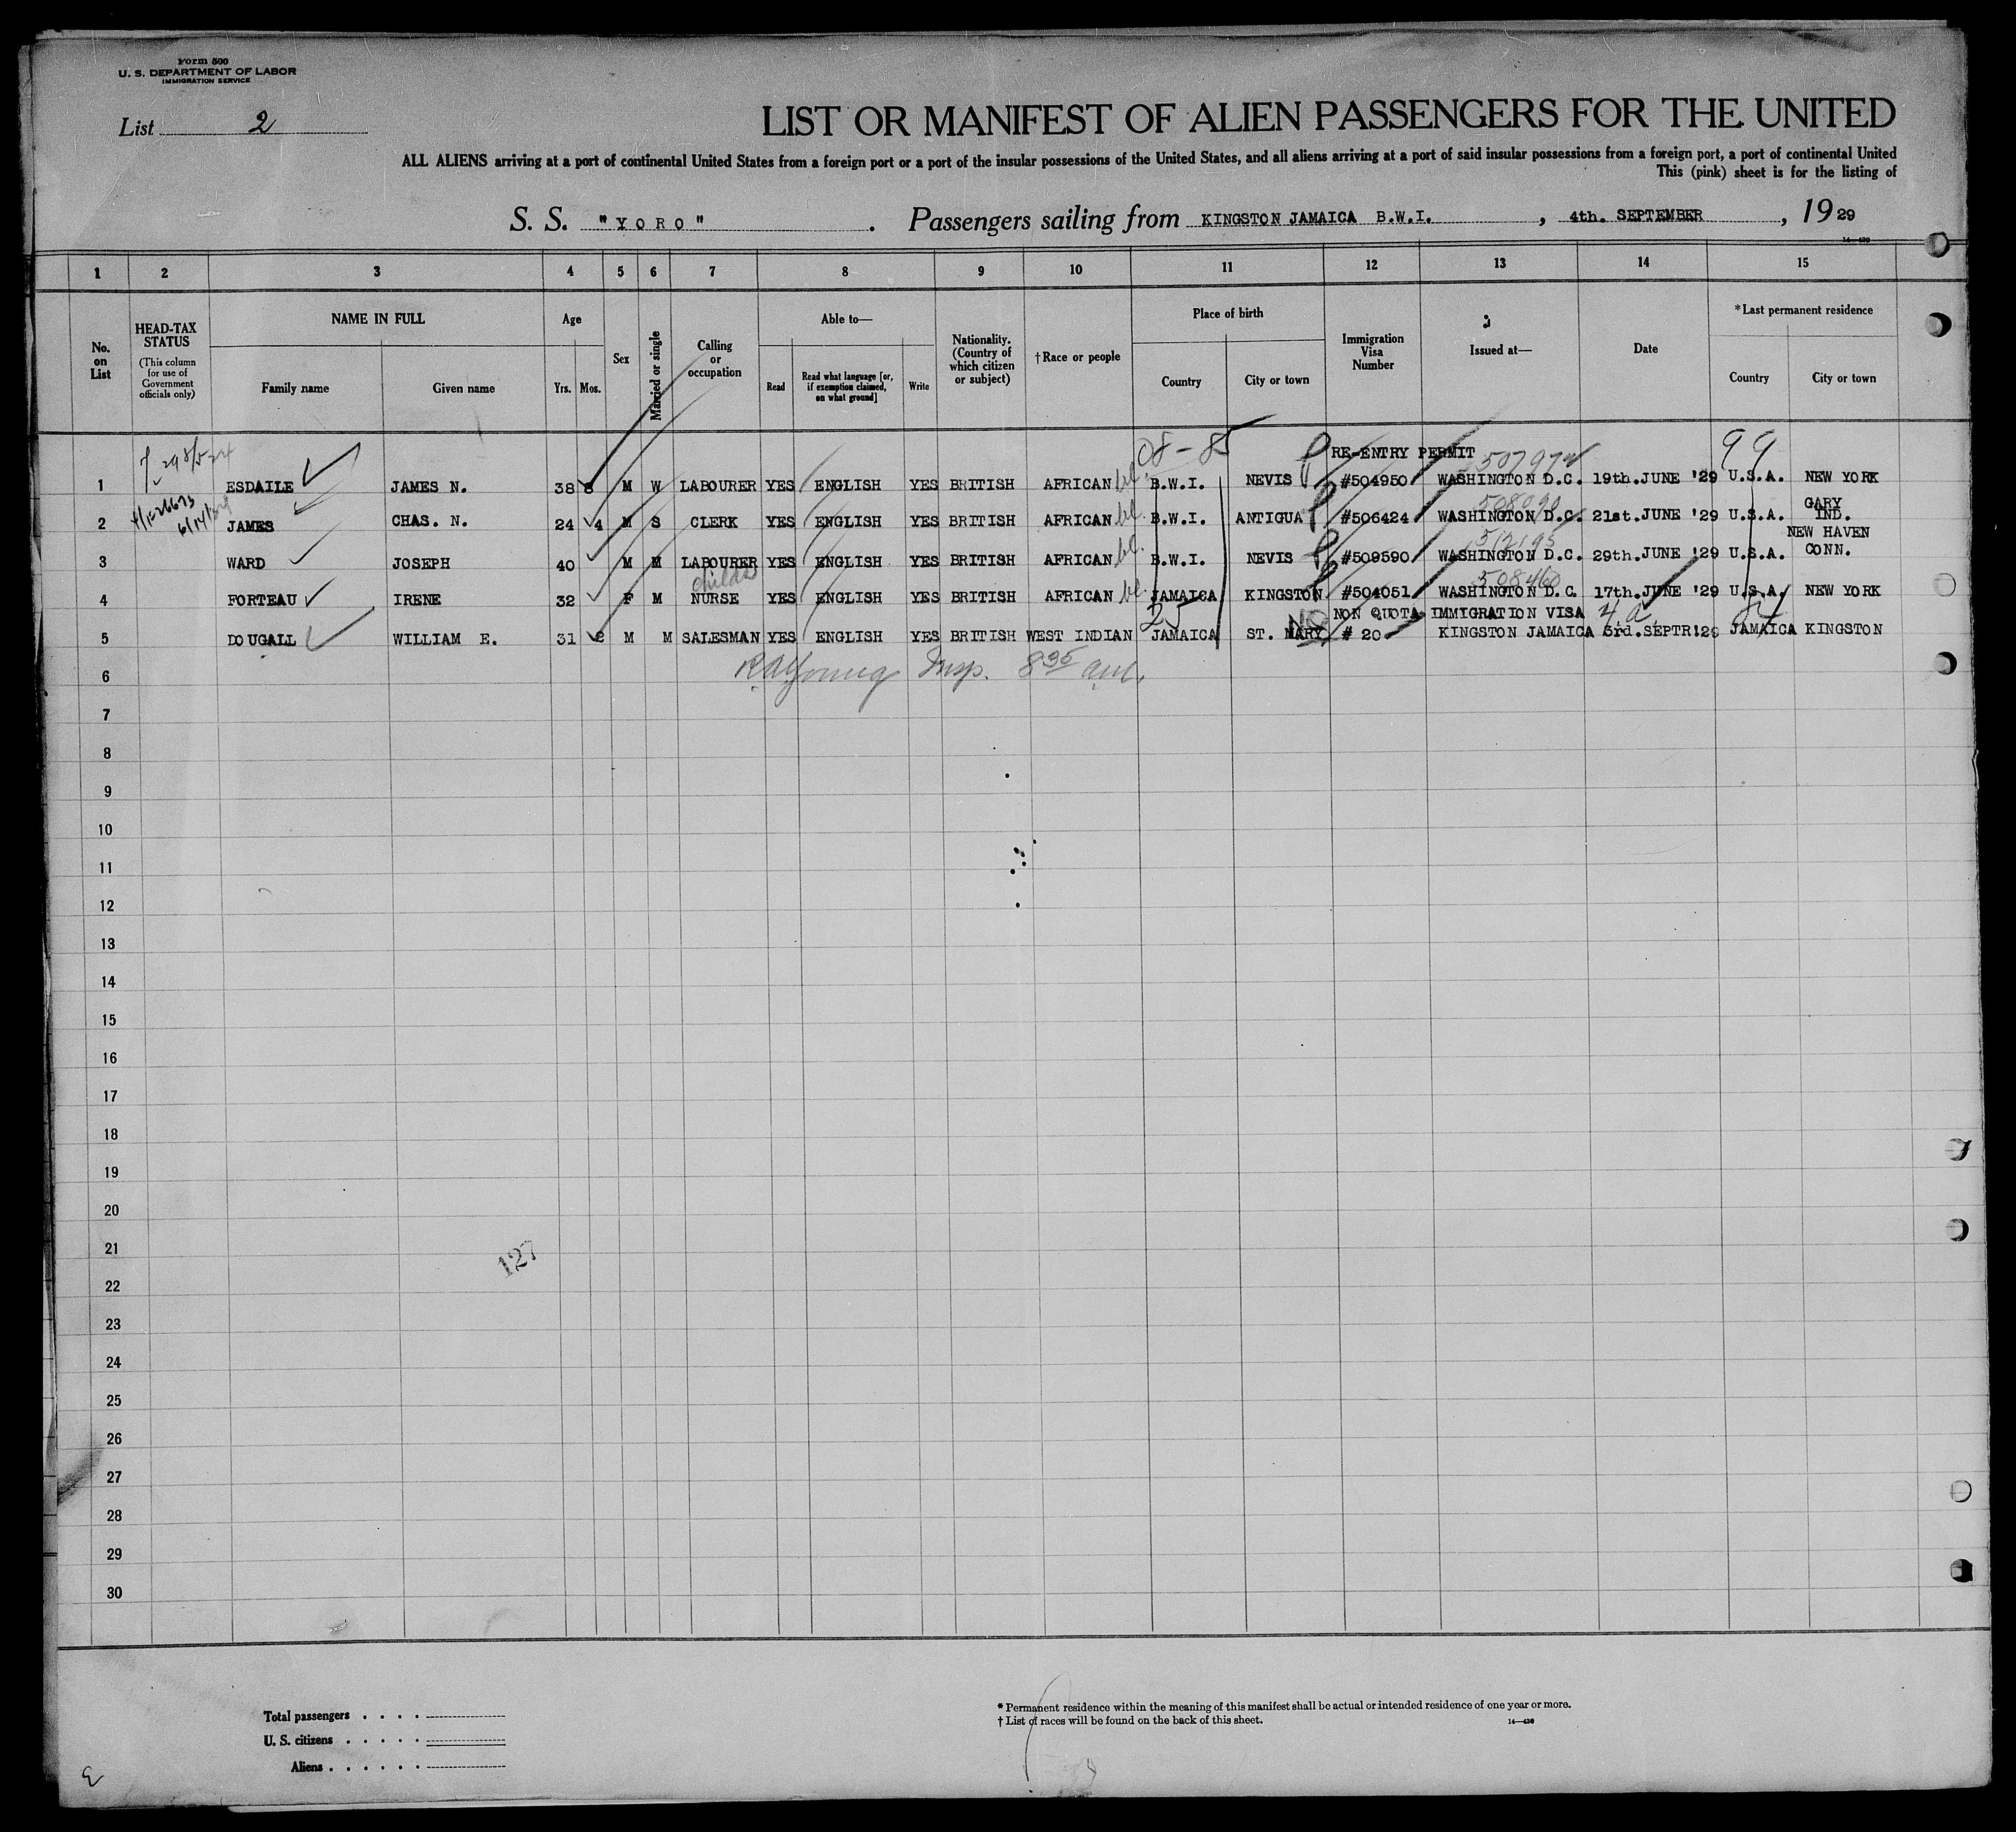 Form 500
U. S. DEPARTMENT OF LABOR
IMMIGRATION SERVICE
List 2
LIST OR MANIFEST OF ALIEN PASSENGERS FOR THE UNITED
ALL ALIENS arriving at a port of continental United States from a foreign port or a port of the insular possessions of the United States, and all aliens arriving at a port of said insular possessions from a foreign port, a port of continental United
This (pink) sheet is for the listing of
S. S. "YORO" . Passengers sailing from KINGSTON JAMAICA B.W.I. , 4th. SEPTEMBER , 19 29
14—430
1 2 3 4 5 6 7 8 9 10 11 12 13 14 15
No. on List
HEAD-TAX STATUS
(This column for use of Government officials only)
NAME IN FULL
Family name Given name
Age
Yrs. Mos.
Sex
Married or single
Calling or occupation
Able to—
Read Read what language [or, if exemption claimed, on what ground] Write
Nationality. (Country of which citizen or subject)
†Race or people
Place of birth
Country City or town
Immigration Visa Number
Issued at—
Date
*Last permanent residence
Country City or town
08-85 99
RE-ENTRY PERMIT
1 ESDAILE JAMES N. 38 8 M W LABOURER YES ENGLISH YES BRITISH AFRICAN bl. B.W.I. NEVIS #504950 WASHINGTON D.C. 19th. JUNE '29 U.S.A. NEW YORK
508090
2 JAMES CHAS. N. 24 4 M S CLERK YES ENGLISH YES BRITISH AFRICAN bl. B.W.I. ANTIGUA #506424 WASHINGTON D.C. 21st. JUNE '29 U.S.A. GARY IND.
512195
3 WARD JOSEPH 40 M M LABOURER YES ENGLISH YES BRITISH AFRICAN bl. B.W.I. NEVIS #509590 WASHINGTON D.C. 29th. JUNE '29 U.S.A. NEW HAVEN CONN.
childs 508460
4 FORTEAU IRENE 32 F M NURSE YES ENGLISH YES BRITISH AFRICAN bl. JAMAICA KINGSTON #504051 WASHINGTON D.C. 17th. JUNE '29 U.S.A. NEW YORK
25 NON QUOTA IMMIGRATION VISA 4 a
5 DOUGALL WILLIAM E. 31 2 M M SALESMAN YES ENGLISH YES BRITISH WEST INDIAN JAMAICA ST. MARY # 20 KINGSTON JAMAICA 3rd. SEPTR '29 JAMAICA KINGSTON
RA Young Insp. 8 35 am.
6
7
8
9
10
11
12
13
14
15
16
17
18
19
20
21
127
22
23
24
25
26
27
28
29
30
Total passengers
U. S. citizens
Aliens
* Permanent residence within the meaning of this manifest shall be actual or intended residence of one year or more.
† List of races will be found on the back of this sheet.
14—430